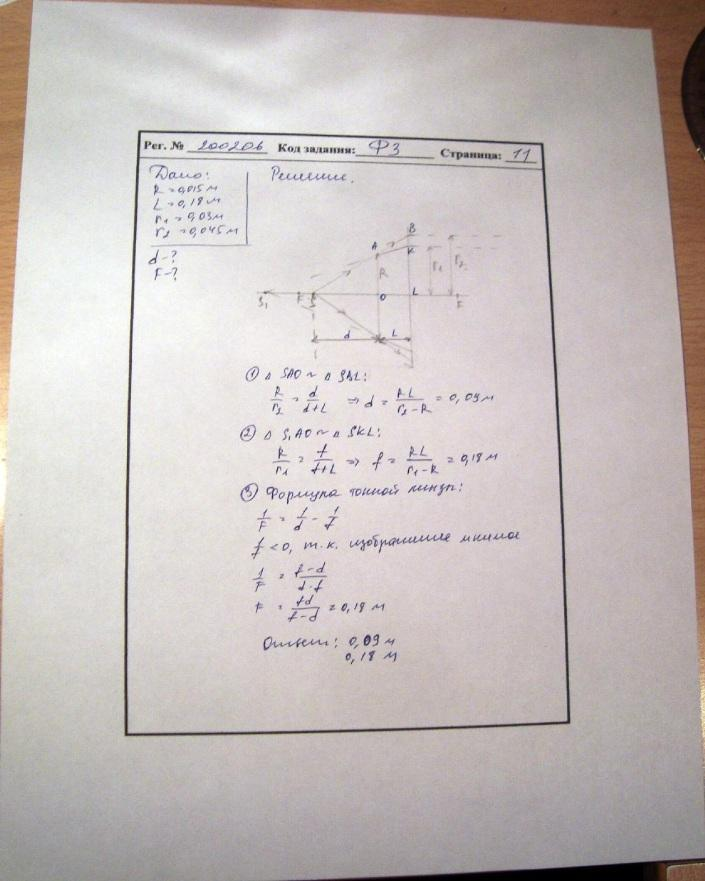 Рег. № 200206 Код задания: Ф3 Страница: 11
Дано:
R = 0,015 м
L = 0,18 м
r1 = 0,03 м
r2 = 0,045 м
d - ?
F - ?
Решение.
B
A
K
R
r1
r2
S1
F
S
O
L
F
d
L
① △ SAO ~ △ SBL:
R/r2 = d/(d+L) ⇒ d = RL/(r2-R) = 0,09 м
② △ S1AO ~ △ SKL:
R/r1 = f/(f+L) ⇒ f = RL/(r1-R) = 0,18 м
③ Формула тонкой линзы:
1/F = 1/d - 1/f
1/f < 0, т.к. изображение мнимое
1/F = (f-d)/(d·f)
F = fd/(f-d) = 0,18 м
Ответ: 0,09 м
0,18 м